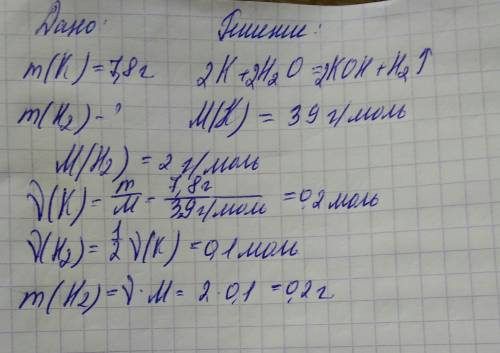 Дано: Решение:
m(K) = 7,8 г 2K + 2H₂O = 2KOH + H₂↑
m(H₂) - ? M(K) = 39 г/моль
M(H₂) = 2 г/моль
ν(K) = m/M = 7,8г/39 г/моль = 0,2 моль
ν(H₂) = 1/2 ν(K) = 0,1 моль
m(H₂) = ν · M = 2 · 0,1 = 0,2 г